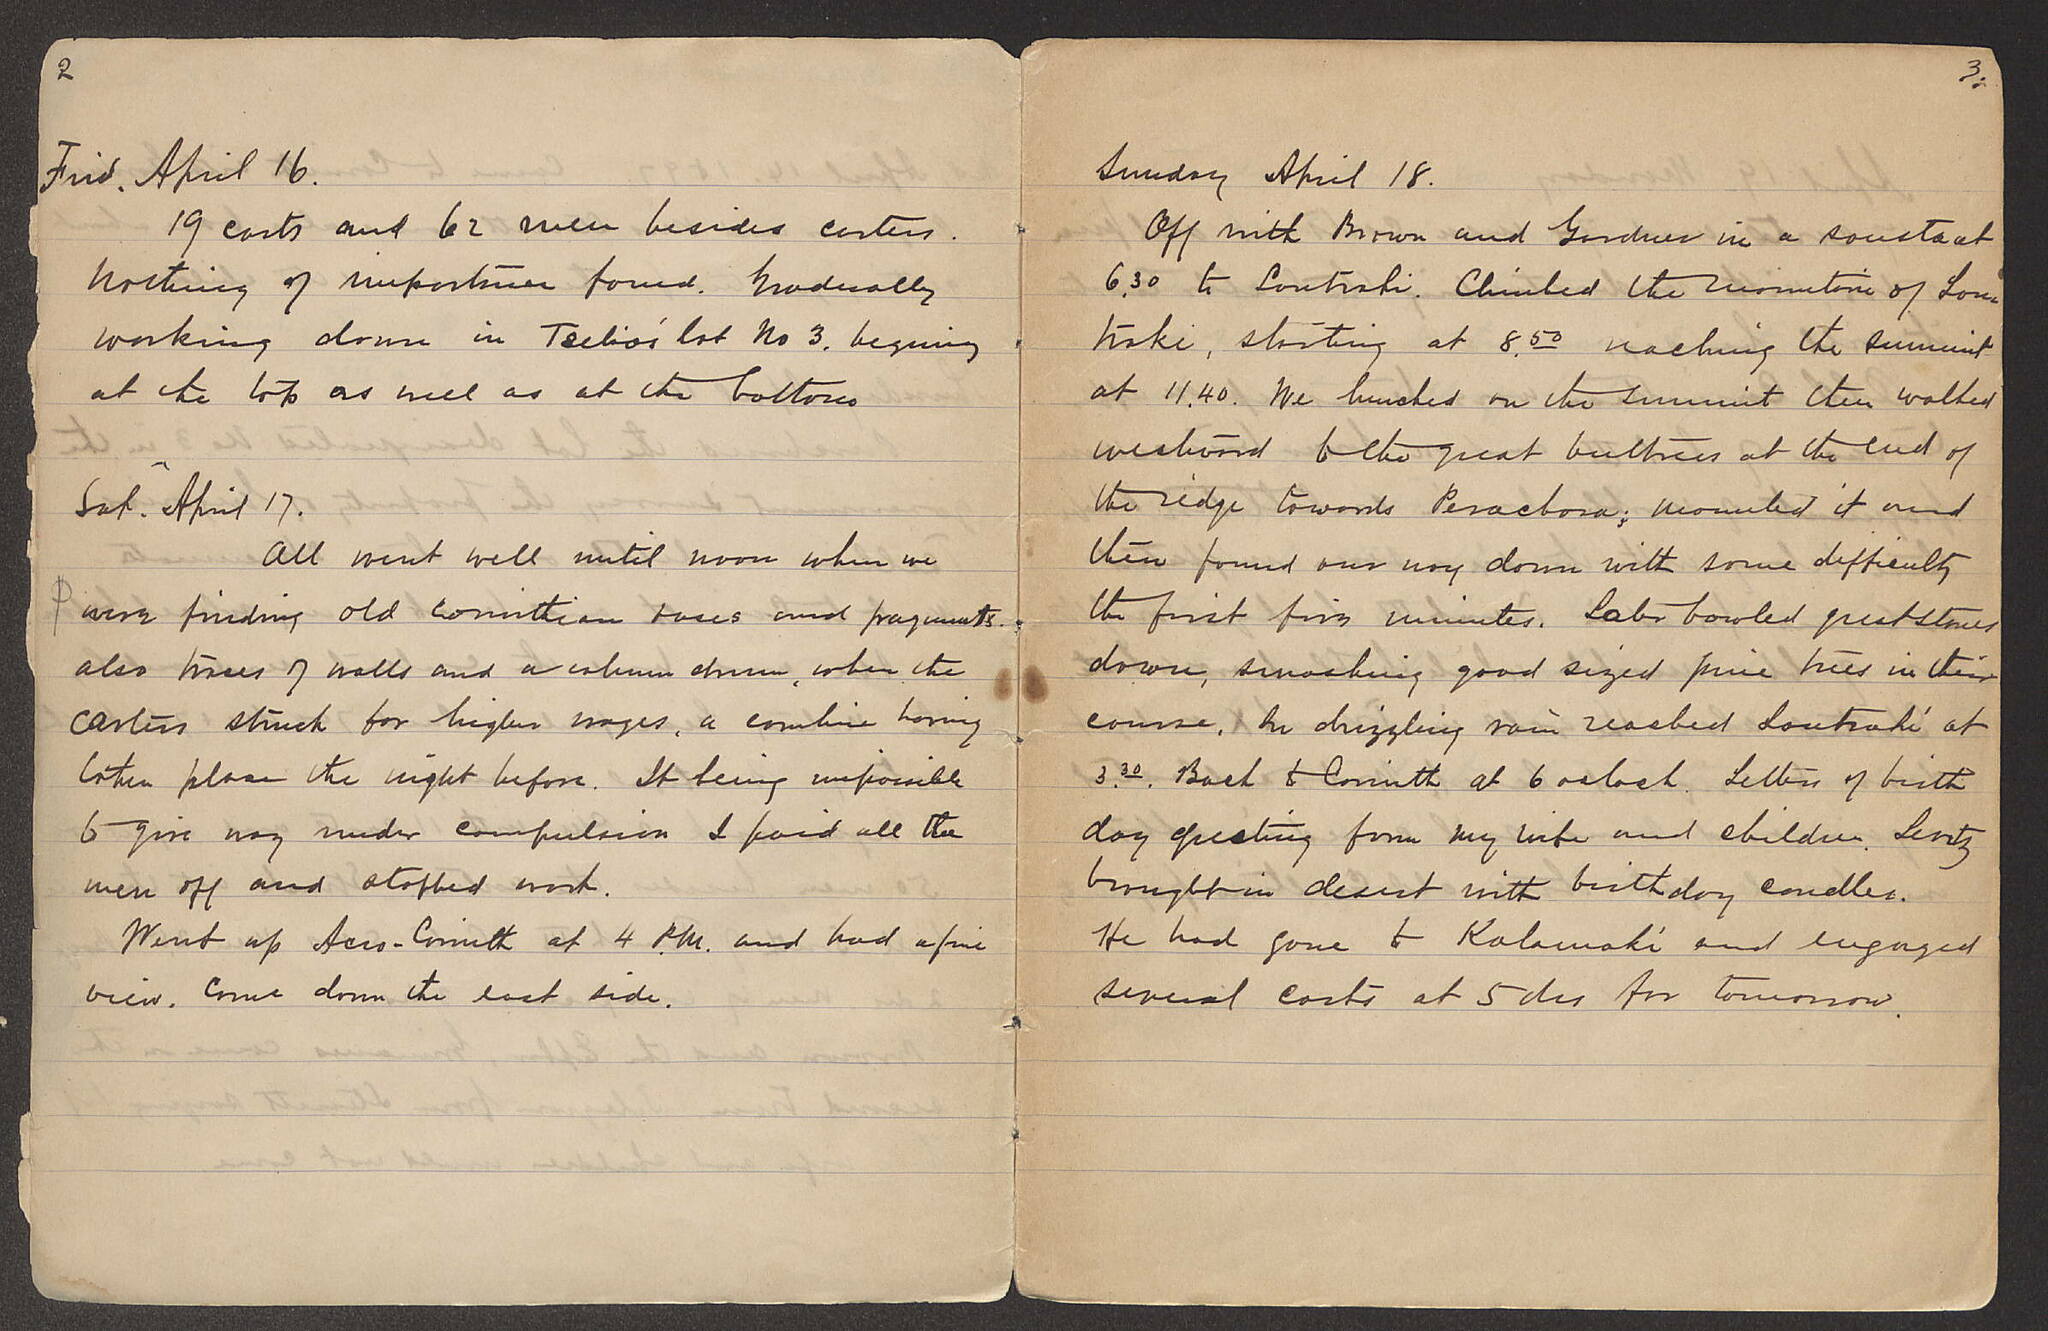 2
Frid. April 16.
19 carts and 62 men besides carters.
Nothing of importance found. Gradually
working down in Tselios' lot No 3. begining
at the top as well as at the bottom
Sat. April 17.
All went well until noon when we
were finding old Corinthian vases and fragments.
also traces of walls and a column drum, when the
carters struck for higher wages, a combine having
taken place the night before. It being impossible
to give way under compulsion I paid all the
men off and stopped work.
Went up Acro-Corinth at 4 P.M. and had a fine
view. Come down the east side.
3.
Sunday April 18.
Off with Brown and Gardner in a sousta at
6.30 to Loutraki. Climbed the mountain of Lou
traki, starting at 8.50 reaching the summit
at 11.40. We lunched on the summit then walked
westward to the great buttress at the end of
the ridge towards Perachora; mounted it and
then found our way down with some difficulty
the first five minutes. Later bowled great stones
down, smashing good sized pine trees in their
course. In drizzling rain reached Loutraki at
3.30. Back to Corinth at 6 oclock. Letters of birth
day greeting from my wife and children.
brought in desert with birthday candles.
He had gone to Kalamaki and engaged
several carts at 5 drs for tomorrow.